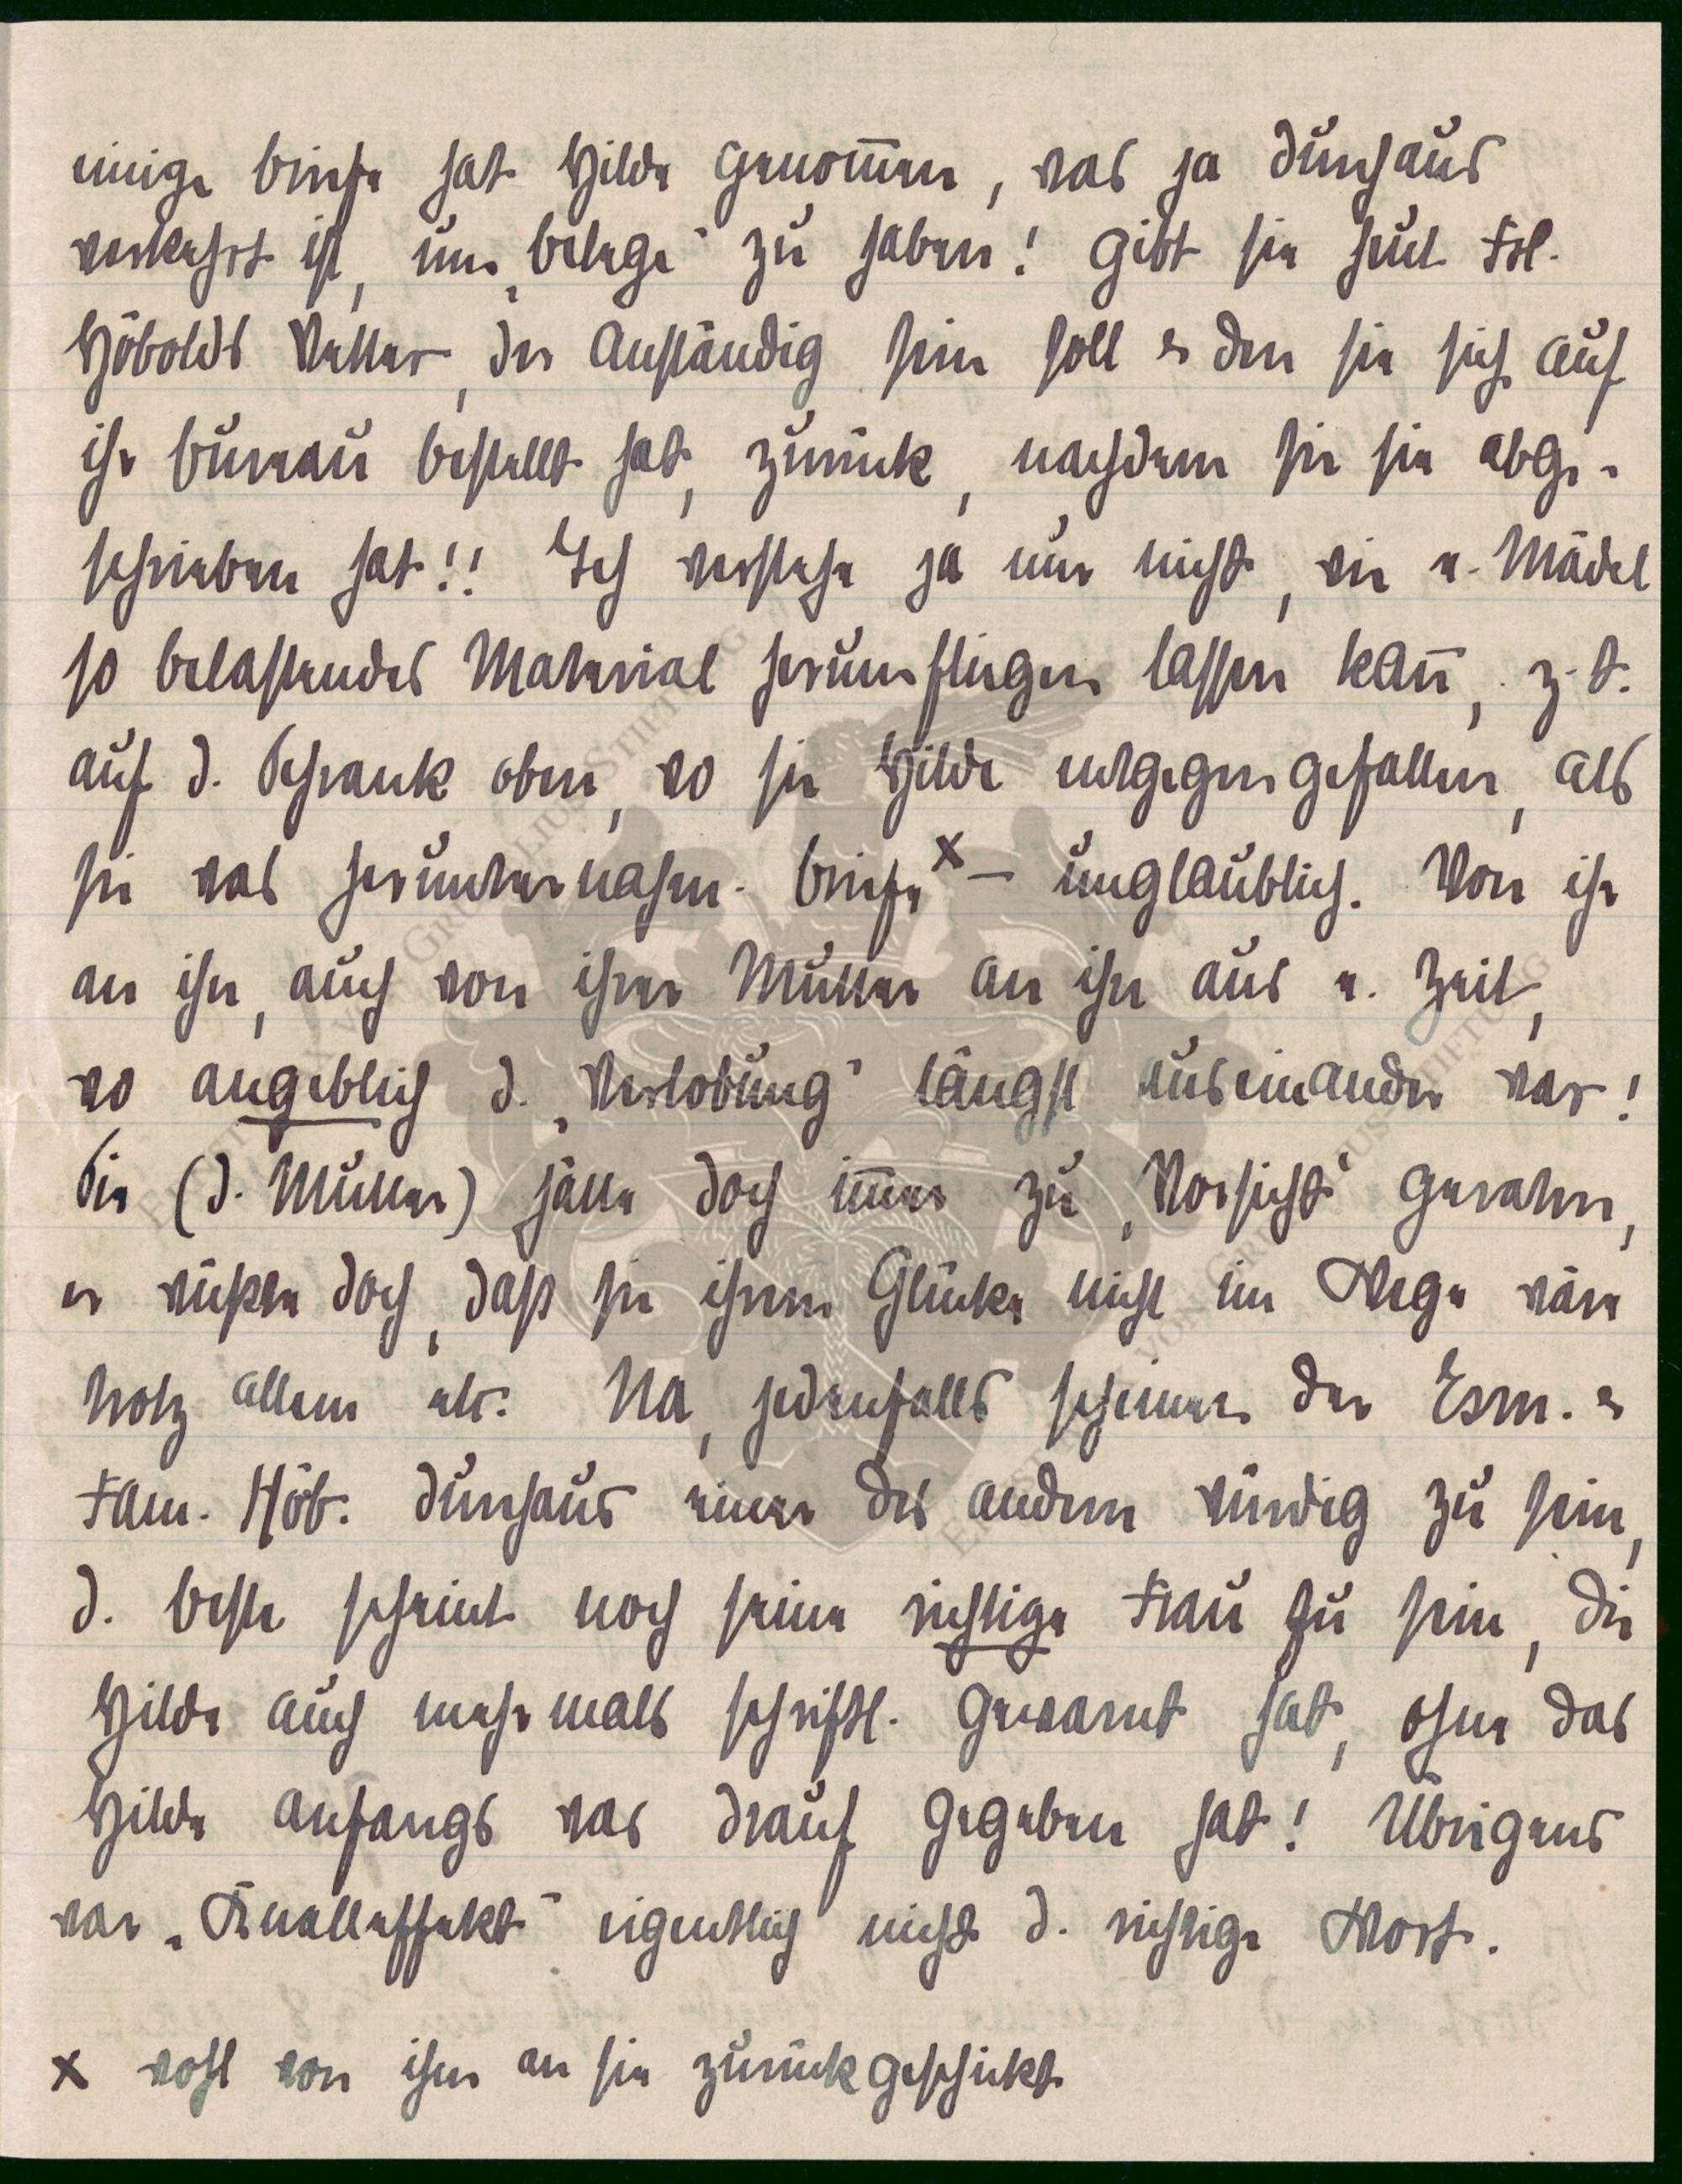 einige Briefe hat Hilde genom̅en, was ja durchaus
verkehrt ist, um „Belege“ zu haben! Gibt sie heut Frl.
Höbolds Vetter, der anständig sein soll & den sie sich auf
ihr Bureau bestellt hat, zurück, nachdem sie sie abge-
schrieben hat!! Ich verstehe ja nur nicht, wie e. Mädel
so belastendes Material herumfliegen lassen kan̅, z. T.
auf d. Schrank oben, wo sie Hilde entgegengefallen, als
sie was herunternahm. Briefe x – unglaublich. Von ihr
an ihn, auch von ihrer Mutter an ihn aus e. Zeit,
wo angeblich d. „Verlobung“ längst auseinander war!
Sie (d. Mutter) hätte doch im̅er zu „Vorsicht“ geraten,
er wüßte doch, daß sie ihrem Glücke nicht im Wege wäre
trotz allem etc. Na, jedenfalls scheinen der Erm. &
Fam. Höb. durchaus einer des andern würdig zu sein,
d. beste scheint noch seine richtige Frau zu sein, die
Hilde auch mehrmals schriftl. gewarnt hat, ohne das
Hilde anfangs was drauf gegeben hat! Übrigens
war „Knalleffekt“ eigentlich nicht d. richtige Wort.
x wohl von ihm an sie zurückgeschickt